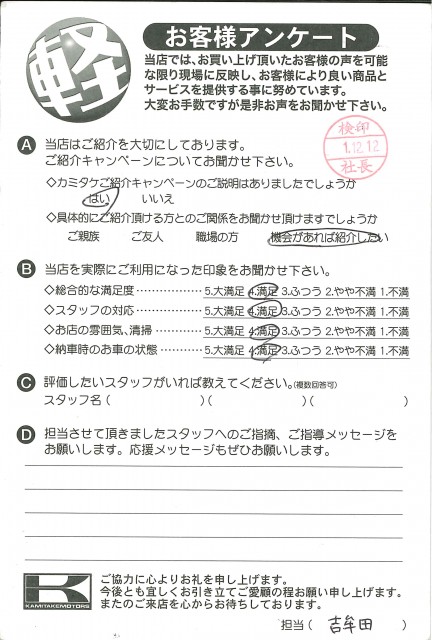 軽
お客様アンケート
当店では、お買い上げ頂いたお客様の声を可能
な限り現場に反映し、お客様により良い商品と
サービスを提供する事に努めています。
大変お手数ですが是非お声をお聞かせ下さい。
検印
1.12.12
社長
A 当店はご紹介を大切にしております。
ご紹介キャンペーンについてお聞かせ下さい。
◇カミタケご紹介キャンペーンのご説明はありましたでしょうか
はい いいえ
◇具体的にご紹介頂ける方とのご関係をお聞かせ頂けますでしょうか
ご親族 ご友人 職場の方 機会があれば紹介したい
B 当店を実際にご利用になった印象をお聞かせ下さい。
◇総合的な満足度 ⋯⋯⋯⋯⋯ 5.大満足 4.満足 3.ふつう 2.やや不満 1.不満
◇スタッフの対応 ⋯⋯⋯⋯⋯ 5.大満足 4.満足 3.ふつう 2.やや不満 1.不満
◇お店の雰囲気、清掃 ⋯⋯⋯ 5.大満足 4.満足 3.ふつう 2.やや不満 1.不満
◇納車時のお車の状態 ⋯⋯⋯ 5.大満足 4.満足 3.ふつう 2.やや不満 1.不満
C 評価したいスタッフがいれば教えてください。(複数回答可)
スタッフ名( )( )( )
D 担当させて頂きましたスタッフへのご指摘、ご指導メッセージを
お願いします。応援メッセージもぜひお願いします。
K
KAMITAKEMOTORS
ご協力に心よりお礼を申し上げます。
今後とも宜しくお引き立てご愛顧の程お願い申し上げます。
またのご来店を心からお待ちしております。
担当( 吉牟田 )